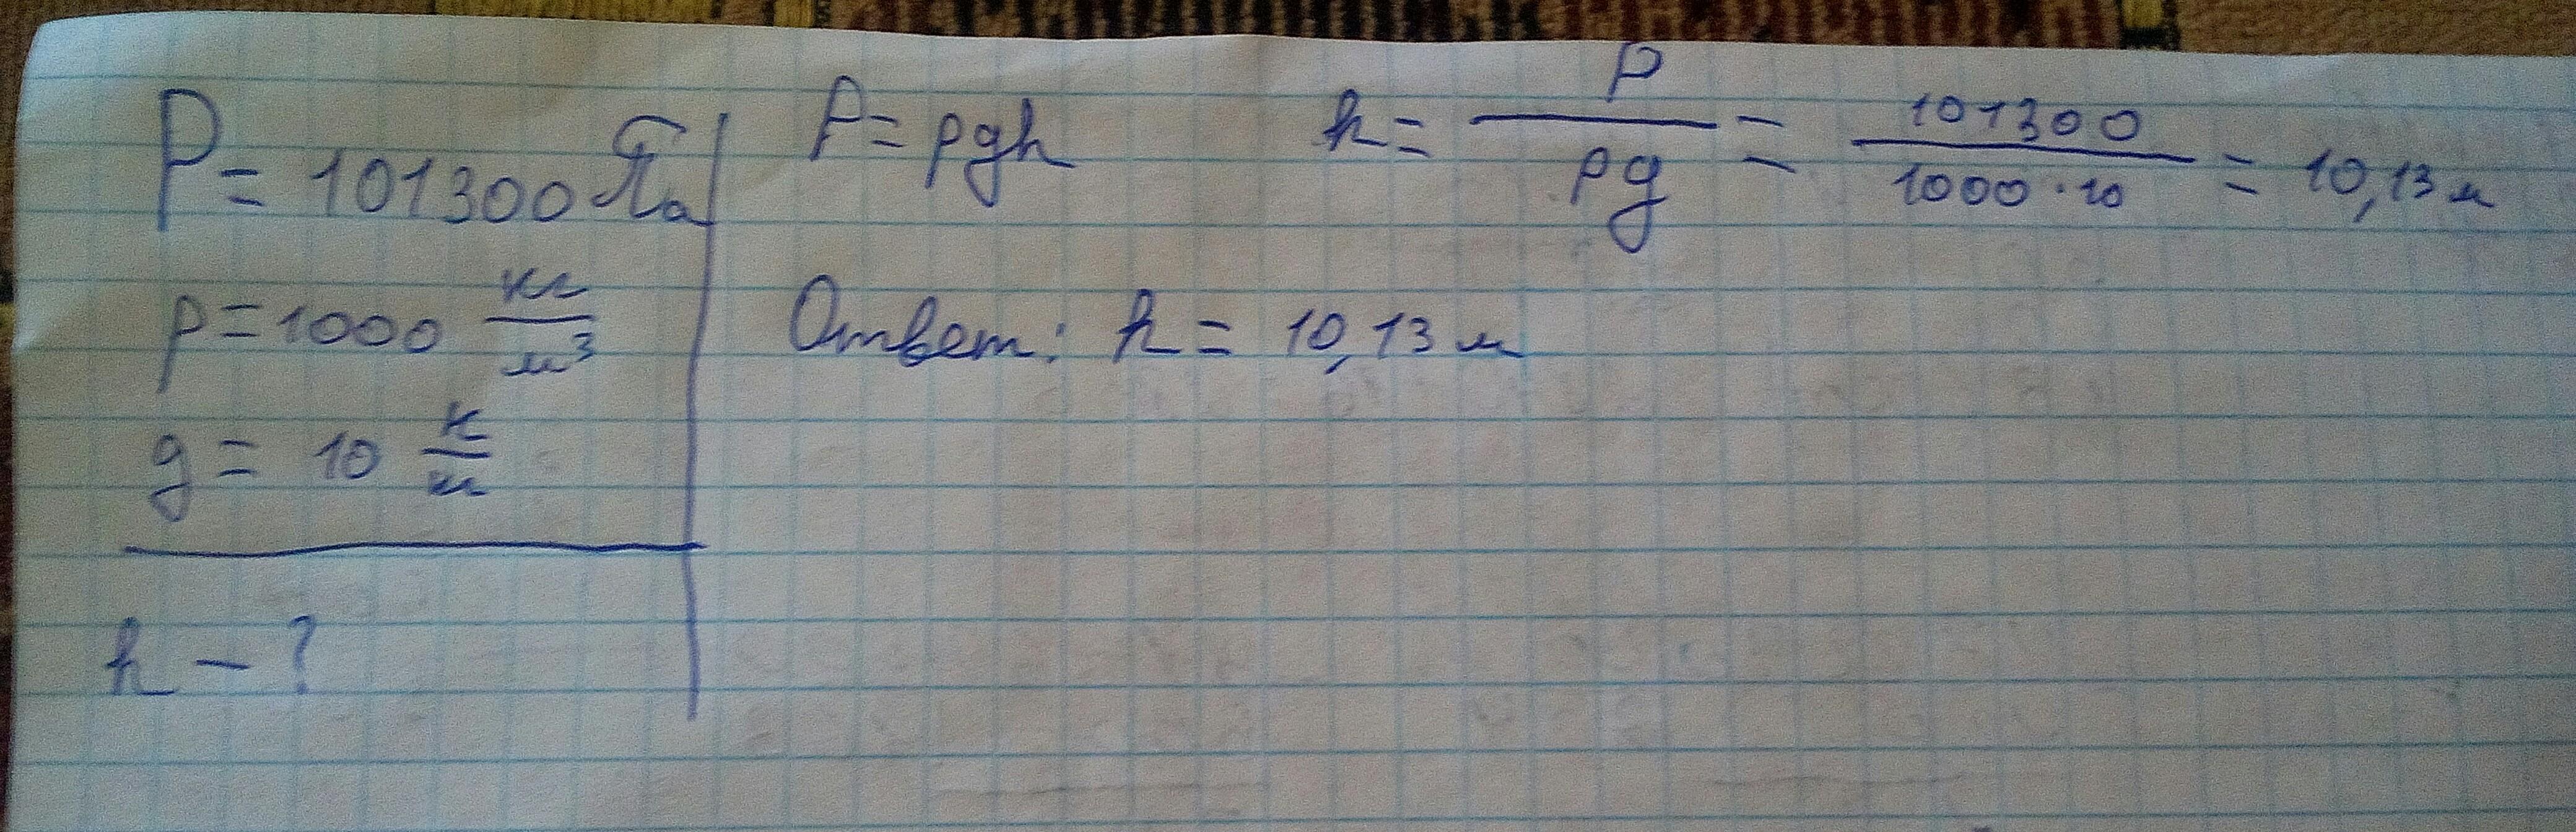 P = 101300 Па
ρ = 1000 кг/м³
g = 10 н/м
h - ?
P = ρgh h = P/ρg = 101300/1000·10 = 10,13 м
Ответ: h = 10,13 м